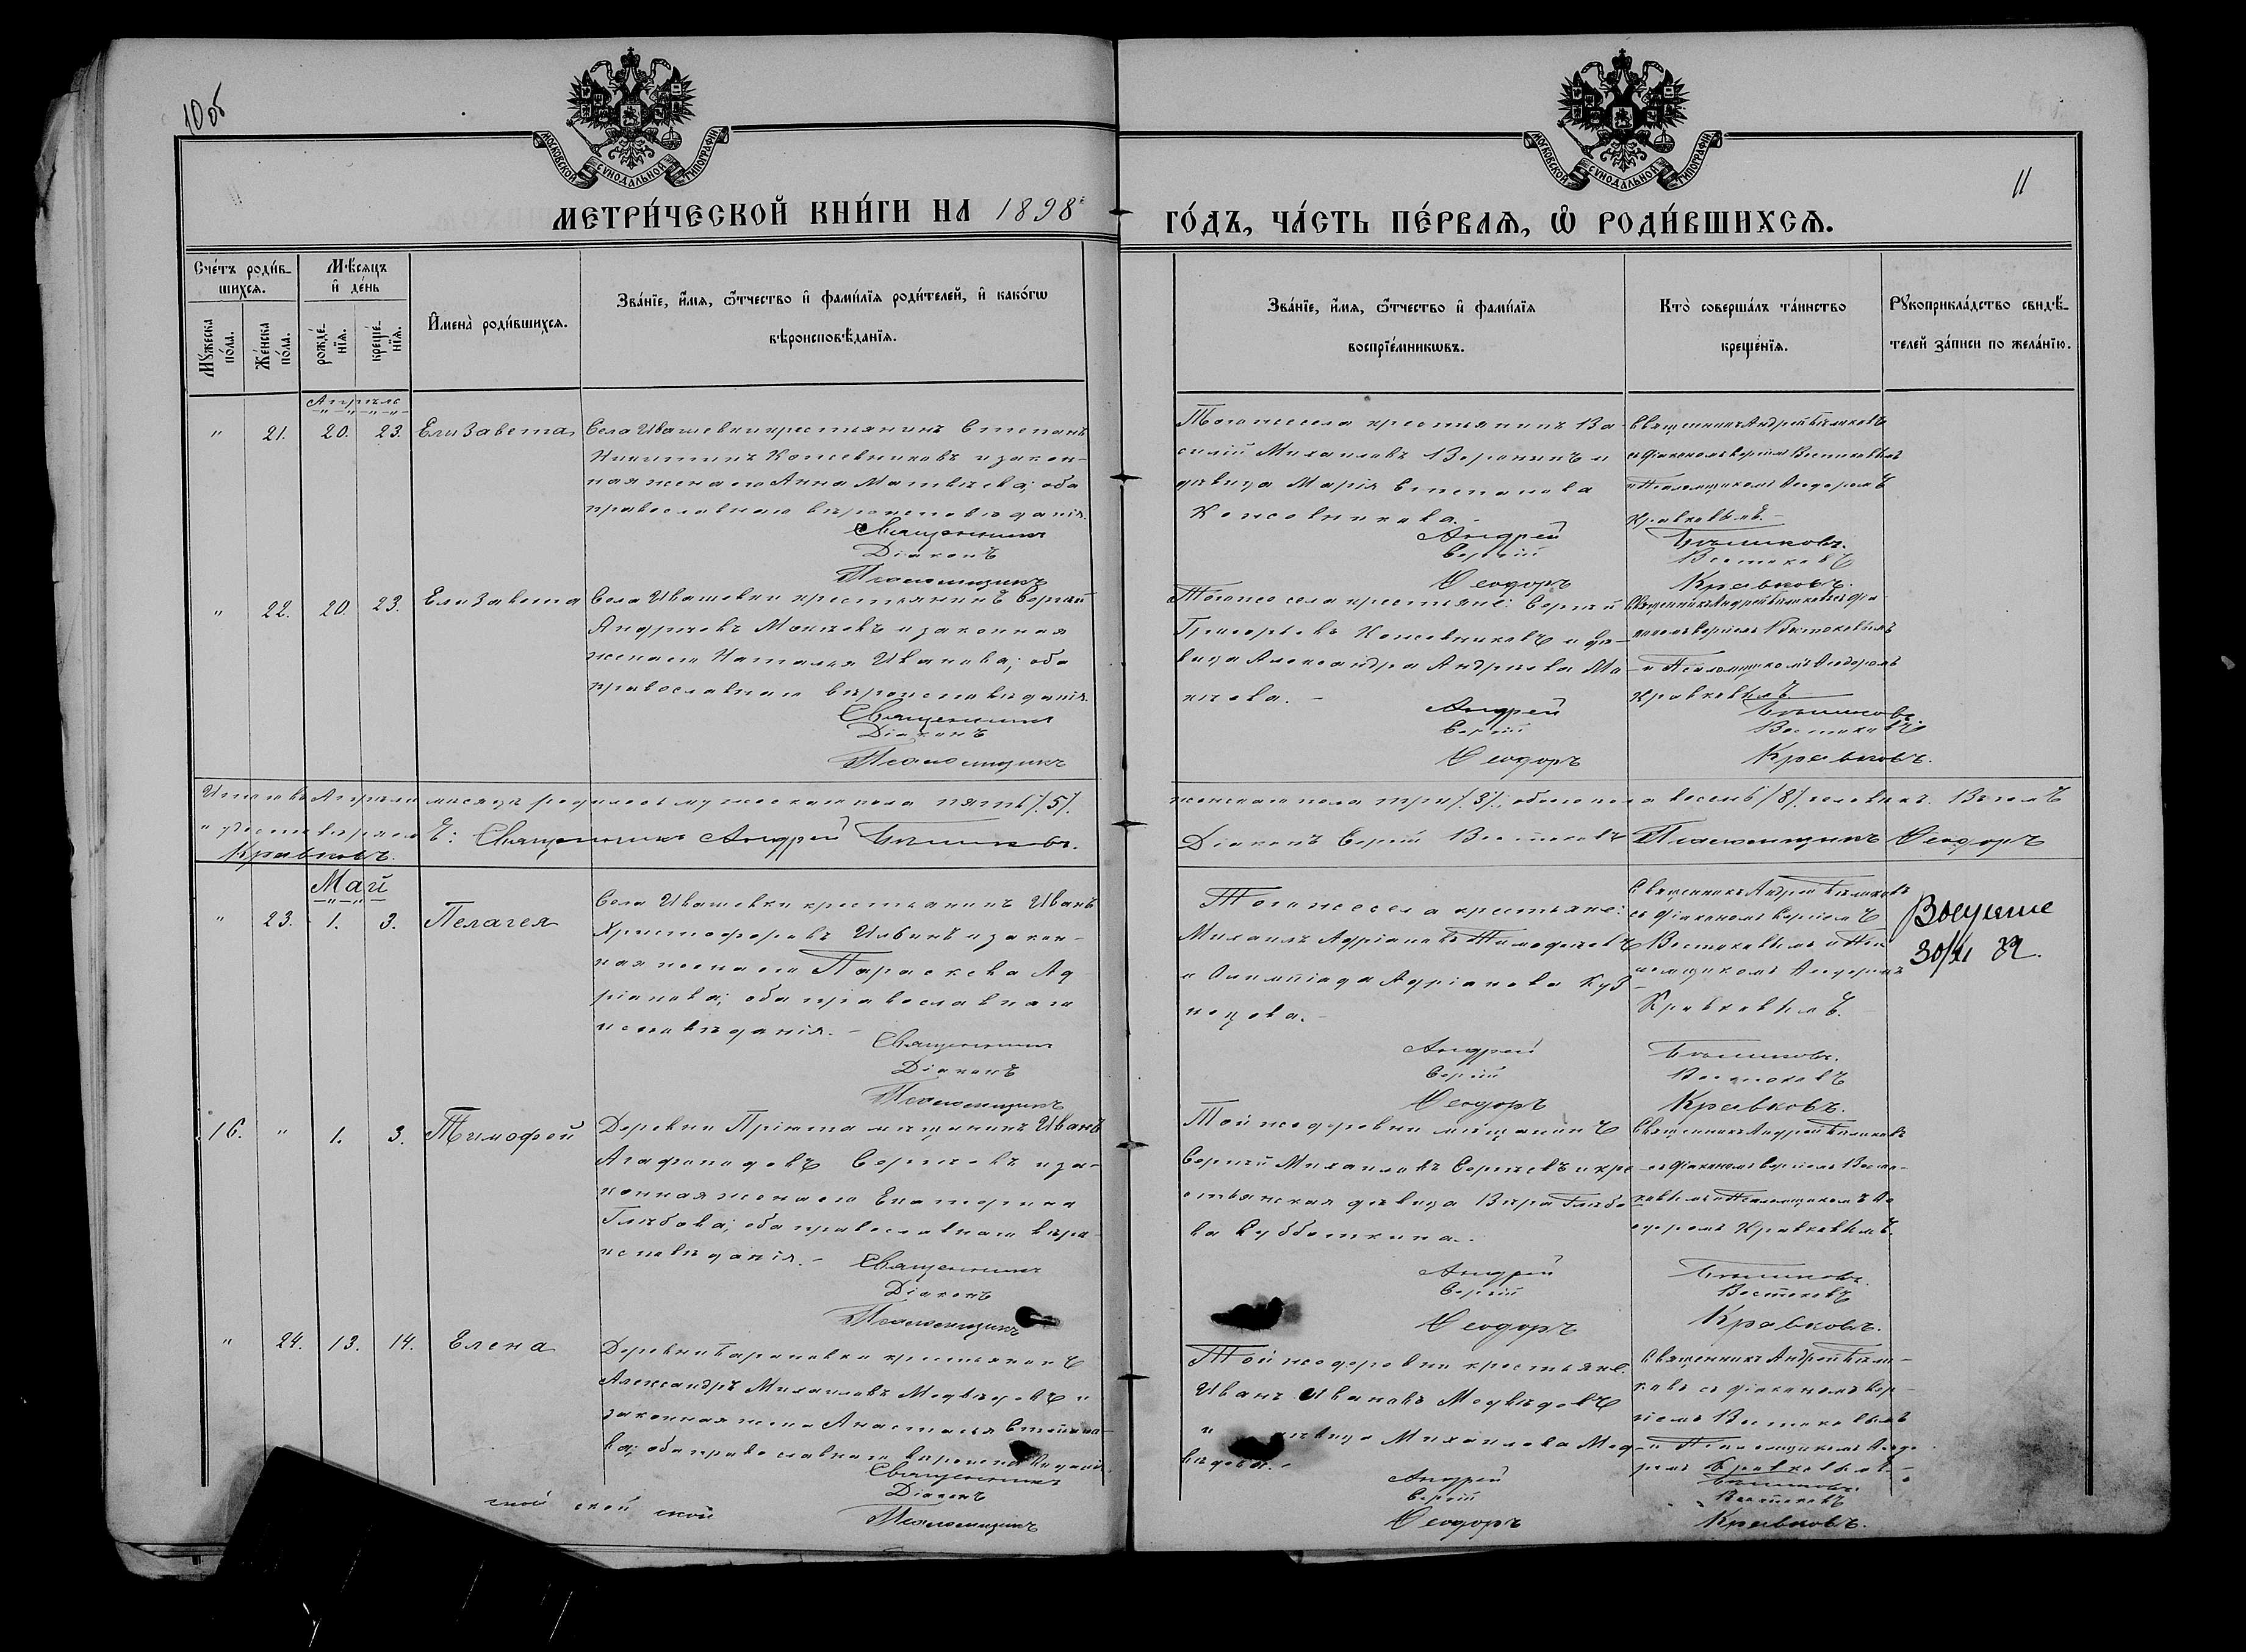 10об
МОСКОВСКОЙ СѴНОДАЛЬНОЙ ТИПОГРАФІИ
МОСКОВСКОЙ СѴНОДАЛЬНОЙ ТИПОГРАФІИ
11
МЕТРИ́ЧЕСКОЙ КНИ́ГИ НА 1898
ГО́ДЪ, ЧА́СТЬ ПЕ́РВАѦ, Ѡ РОДИ́ВШИХСѦ.
Сче́тъ роди́в-
шихсѧ.
Мѣ́сѧцъ
и҆ де́нь
Мꙋ́жеска
по́ла.
Же́нска
по́ла.
рожде́-
нїѧ.
креще́-
нїѧ.
И҆мена̀ роди́вшихсѧ.
Зва́нїе, и҆́мѧ, ѻ҆́тчество и҆ фами́лїѧ роди́телей, и҆ како́гѡ
вѣроисповѣ́данїѧ.
Зва́нїе, и҆́мѧ, ѻ҆́тчество и҆ фами́лїѧ
воспрїе́мникѡвъ.
Кто̀ соверша́лъ та́инство
креще́нїѧ.
Рꙋкоприкла́дство свидѣ́-
телей за́писи по жела́нїю.
Апрѣль
" 21. 20. 23. Елизавета
Села Ивашевки крестьянинъ Степанъ
Никитинъ Кожевниковъ и закон-
ная жена его Анна Матвѣева; оба
православнаго вѣроисповѣданія.
Священникъ
Діаконъ
Псаломщикъ
Того же села крестьянинъ Ва-
силій Михаиловъ Воронинъ и
дѣвица Марія Степанова
Кожевникова.
Андрей
Сергій
Ѳеодоръ
Священникъ Андрей Бѣликовъ
съ діакономъ Сергіемъ Востоковымъ
и Псаломщикомъ Ѳеодоромъ
Кравковымъ.
Бѣликовъ.
Востоковъ
Кравковъ.
" 22. 20. 23. Елизавета
Села Ивашевки крестьянинъ Сергѣй
Андреевъ Мокѣевъ и законная
жена его Наталья Иванова; оба
православнаго вѣроисповѣданія.
Священникъ
Діаконъ
Псаломщикъ
Того же села крестьяне: Сергѣй
Григорьевъ Кожевниковъ и дѣ-
вица Александра Андреева Мо-
кѣева.
Андрей
Сергій
Ѳеодоръ
Священникъ Андрей Бѣликовъ съ діа-
кономъ Сергіемъ Востоковымъ
и Псаломщикомъ Ѳеодоромъ
Кравковымъ
Бѣликовъ.
Востоковъ
Кравковъ.
Итого въ Апрѣлѣ мѣсяцѣ родилось мужескаго пола пять /5/.
женскаго пола три /3/, обоего пола восемь /8/ человѣкъ. Въ чемъ
и удостовѣряемъ: Священникъ Андрей Бѣликовъ.
Діаконъ Сергій Востоковъ Псаломщикъ Ѳеодоръ
Кравковъ.
Май
" 23. 1. 3. Пелагея
Села Ивашевки крестьянинъ Иванъ
Христофоровъ Ильинъ и закон-
ная жена его Параскева Ад-
ріанова; оба православнаго
исповѣданія.
Священникъ
Діаконъ
Псаломщикъ
Того же села крестьяне:
Михаилъ Адріановъ Тимофеевъ
и Олимпіада Адріанова Куз-
нецова.
Андрей
Сергій
Ѳеодоръ
Священникъ Андрей Бѣликовъ
съ діакономъ Сергіемъ
Востоковымъ и Пса-
ломщикомъ Ѳеодоромъ
Кравковымъ.
Бѣликовъ.
Востоковъ
Кравковъ.
30/XI 32.
16. " 1. 3. Тимофей
Деревни Пріюта мѣщанинъ Иванъ
Агафоподовъ Сергѣевъ и за-
конная жена его Екатерина
Глѣбова; оба православнаго вѣро-
исповѣданія.
Священникъ
Діаконъ
Псаломщикъ
Той же деревни мѣщанинъ
Сергѣй Михаиловъ Сергѣевъ и кре-
стьянская дѣвица Вѣра Глѣбо-
ва Субботкина.
Андрей
Сергій
Ѳеодоръ
Священникъ Андрей Бѣликовъ
съ діакономъ Сергіемъ Восто-
ковымъ и Псаломщикомъ Ѳе-
одоромъ Кравковымъ.
Бѣликовъ.
Востоковъ
Кравковъ.
" 24. 13. 14. Елена
Деревни крестьянинъ
Александръ Михаиловъ Медвѣдевъ и
законная жена Анастасія Степано-
ва; оба православнаго вѣроисповѣданія.
Священникъ
Діаконъ
Псаломщикъ
Той же деревни крестьяне:
Иванъ Ивановъ Медвѣдевъ
и Михаилова Мед-
вѣдева.
Андрей
Сергій
Ѳеодоръ
Священникъ Андрей Бѣли-
ковъ съ діакономъ Сер-
гіемъ Востоковымъ
и Псаломщикомъ Ѳеодо-
ромъ Кравковымъ.
Бѣликовъ.
Востоковъ
Кравковъ.